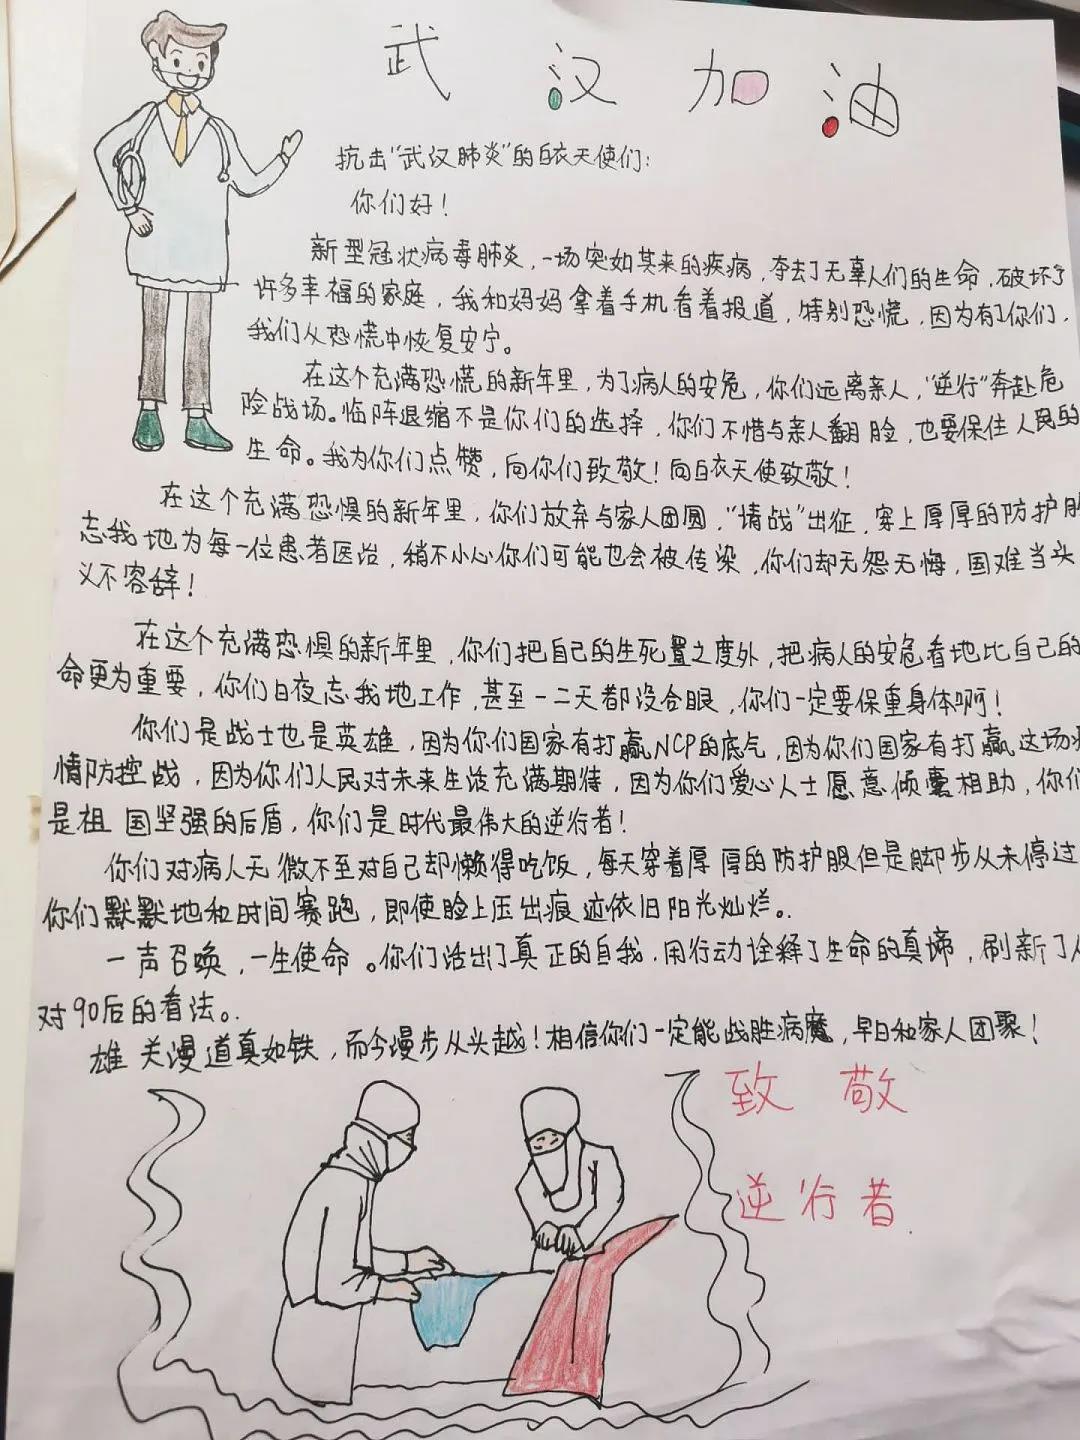 武汉加油
抗击“武汉肺炎”的白衣天使们:
你们好!
新型冠状病毒肺炎,一场突如其来的疾病,夺去了无辜人们的生命,破坏了
许多幸福的家庭,我和妈妈拿着手机看着报道,特别恐慌,因为有了你们,
我们从恐慌中恢复安宁。
在这个充满恐慌的新年里,为了病人的安危,你们远离亲人,“逆行”奔赴危
险战场。临阵退缩不是你们的选择,你们不惜与亲人翻脸,也要保住人民的
生命。我为你们点赞,向你们致敬!向白衣天使致敬!
在这个充满恐惧的新年里,你们放弃与家人团圆,“情战”出征,穿上厚厚的防护服
忘我地为每一位患者医治,稍不小心你们可能也会被传染,你们却无怨无悔,国难当头
义不容辞!
在这个充满恐惧的新年里,你们把自己的生死置之度外,把病人的安危看地比自己的
命更为重要,你们日夜忘我地工作,甚至一二天都没合眼,你们一定要保重身体啊!
你们是战士也是英雄,因为你们国家有打赢NCP的底气,因为你们国家有打赢这场疫
情防控战,因为你们人民对未来生活充满期待,因为你们爱心人士愿意倾囊相助,你们
是祖国坚强的后盾,你们是时代最伟大的逆行者!
你们对病人无微不至对自己却懒得吃饭,每天穿着厚厚的防护服但是脚步从未停过
你们默默地和时间赛跑,即使脸上压出痕迹依旧阳光灿烂。.
一声召唤,一生使命。你们活出了真正的自我.用行动诠释了生命的真谛,刷新了人
对90后的看法。.
雄关漫道真如铁,而今漫步从头越!相信你们一定能战胜病魔,早日和家人团聚!
致敬
逆行者.